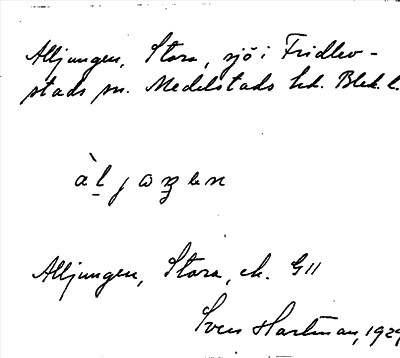 Alljungen, Stora, sjö i Fridlev-
stads sn. Medelstads hd. Blek. l.
Alljungen, Stora, ek. G11
Sven Hartman, 1929